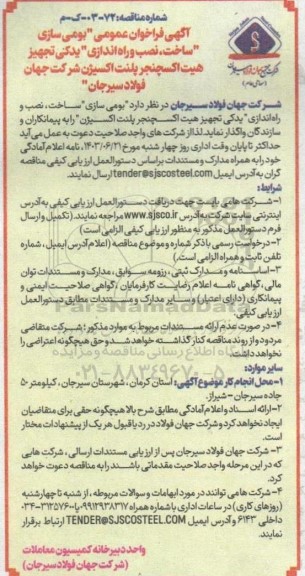 شماره مناقصه: ۷۲-۰۳-ک-م
آگهی فراخوان عمومی "بومی سازی
"ساخت، نصب و راه اندازی" یدکی تجهیز
هیت اکسچنجر پلنت اکسیژن شرکت جهان
فولاد سیرجان"
شرکت جهان فولاد سیرجان در نظر دارد "بومی سازی "ساخت، نصب و
راه اندازی" یدکی تجهیز هیت اکسچنجر پلنت اکسیژن" را به پیمانکاران و
سازندگان واگذار نماید. لذا از شرکت های واجد صلاحیت دعوت به عمل می آید
حداکثر تا پایان وقت اداری روز چهار شنبه مورخ ۱۴۰۳/۰۶/۲۱، نامه اعلام آمادگی
خود را به همراه مدارک و مستندات براساس دستورالعمل ارزیابی کیفی مناقصه
گران به آدرس ایمیل tender@sjscosteel.com ارسال نمایند.
شرایط:
۱-شرکت هامی بایست جهت دریافت دستورالعمل ارزیابی کیفی به آدرس
اینترنتی سایت شرکت به آدرس www.sjsco.ir مراجعه نمایند. (تکمیل و ارسال
فرم دستورالعمل مذکور به منظور ارزیابی کیفی الزامی است)
۲-درخواست رسمی با ذکر شماره و موضوع مناقصه (اعلام آدرس ایمیل، شماره
تلفن ثابت و همراه الزامی است.)
۳-اساسنامه و مدارک ثبتی، رزومه، سوابق، مدارک و مستندات توان
مالی، گواهی نامه اعلام رضایت کارفرمایان، گواهی صلاحیت ایمنی و
پیمانکاری (دارای اعتبار) و سایر مدارک و مستندات مطابق دستورالعمل
ارزیابی کیفی
۴-در صورت عدم ارائه مستندات مربوط به موارد مذکور؛ شرکت متقاضی
مردود و از روند مناقصه کنار گذاشته خواهد شد و حق هیچگونه اعتراضی را
نخواهد داشت.
سایر موارد:
۱-محل انجام کار موضوع آگهی: استان کرمان، شهرستان سیرجان، کیلومتر ۵۰
جاده سیرجان - شیراز.
۲-ارائه اسناد و اعلام آمادگی مطابق شرح بالا هیچگونه حقی برای متقاضیان
ایجاد نخواهد کرد و شرکت جهان فولاد در رد یا قبول هر یک از پیشنهادات مختار
است.
۳-شرکت جهان فولاد سیرجان پس از ارزیابی مستندات ارسالی، شرکت هایی
که در این مرحله واجد صلاحیت مقدماتی باشند را به مناقصه دعوت خواهد
کرد.
۴-شرکت ها می توانند در مورد ابهامات و سوالات مربوطه، از شنبه تا چهارشنبه
(روزهای کاری) در ساعات اداری با شماره همراه ۰۹۹۱۲۹۳۸۳۱۷ یا ۰۳۴-۳۱۲۵۷۶۰۰
داخلی ۶۱۴۳ و آدرس ایمیل TENDER@SJSCOSTEEL.COM ارتباط برقرار
نمایند.
واحد دبیرخانه کمیسیون معاملات
(شرکت جهان فولاد سیرجان)
ParsNamadData
۰۲۱-۸۸۳۴۹۶۷۰-۵